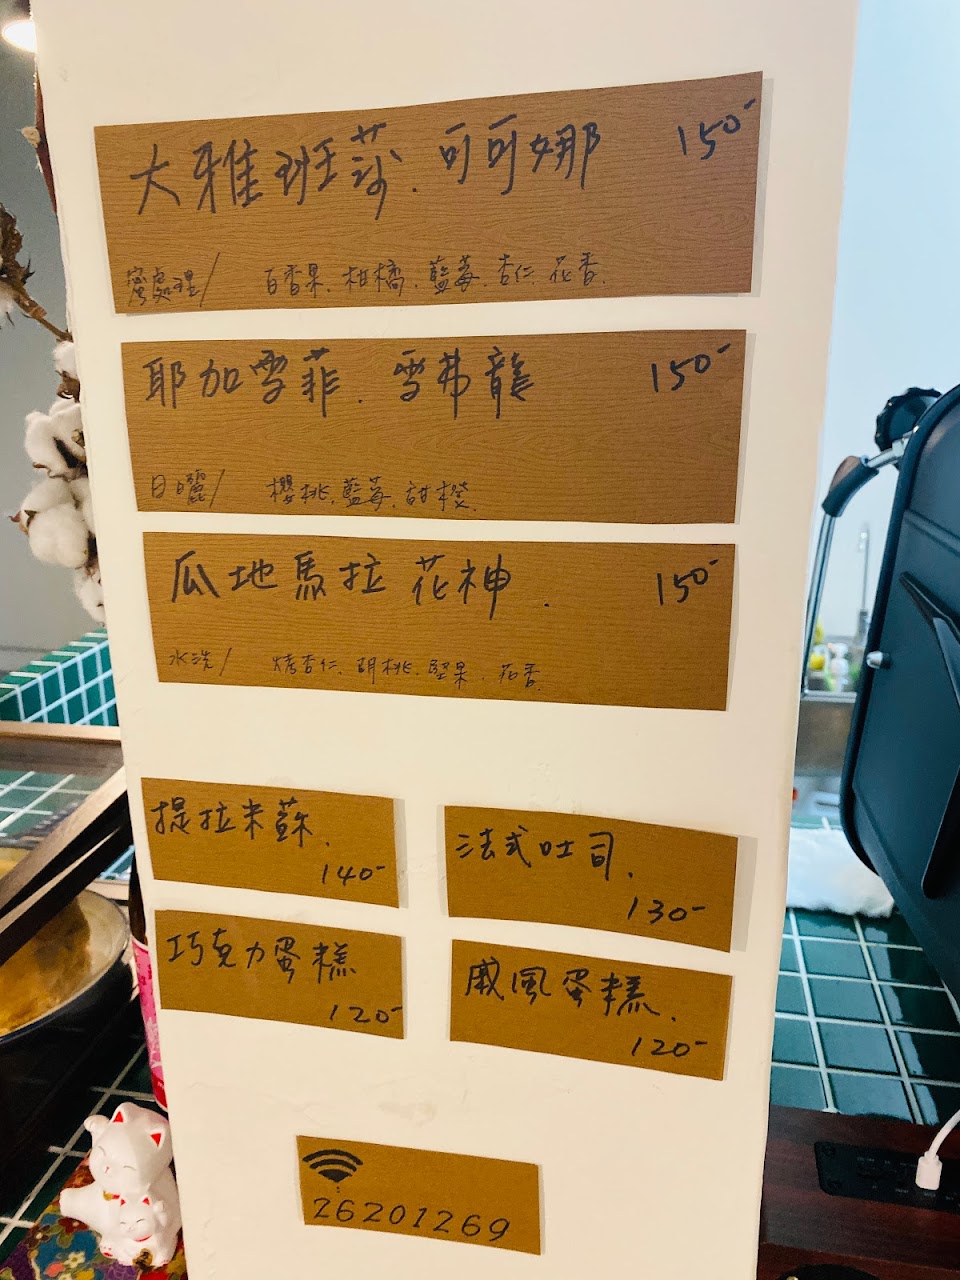 大雅班莎.可可娜 150-
蜜處理/ 百香果.柑橘.藍莓.杏仁.花香.
耶加雪菲.雪弗龍 150-
日曬/ 櫻桃.藍莓.甜橙.
瓜地馬拉 花神. 150-
水洗/ 烤杏仁.胡桃.堅果.花香.
提拉米蘇.
140-
法式吐司.
130-
巧克力蛋糕
120-
戚風蛋糕.
120-
26201269